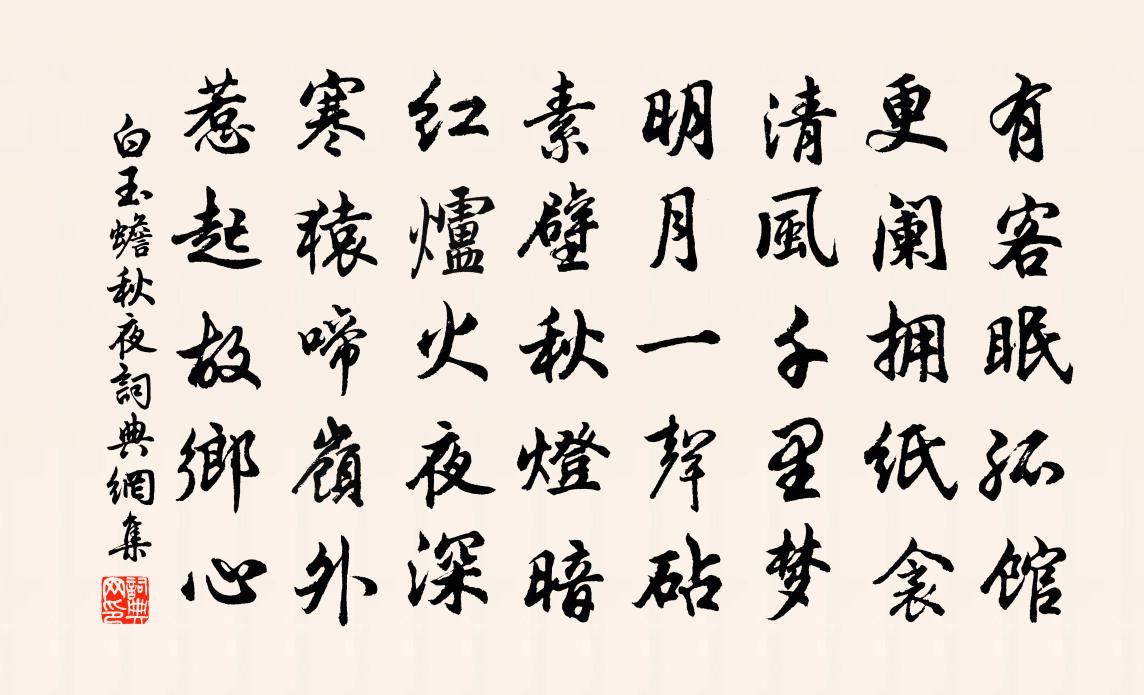 有客眠孤馆
更阑拥纸衾
清風千里梦
明月一声砧
素壁秋燈暗
红爐火夜深
寒猿啼嶺外
惹起故鄉心
白玉蟾秋夜詞典網集
詞典网印